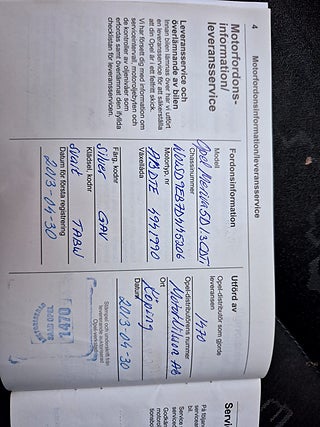 4
Motorfordonsinformation/leveransservice
Motorfordons-
information/
leveransservice
Leveransservice och
överlämnande av bilen
Innan bilen lämnas över har vi utfört
en leveransservice för att säkerställa
att din Opel är i ett felfritt skick.
Vi har försett dig med information om
serviceintervall, motoroljebyten och
de kontroller av oljenivåer som
erfordras samt överlämnat den ifyllda
checklistan för leveransservicen.
Fordonsinformation
Modell
Opel Meriva 5D 1.3 CDTI
Chassinummer
Motortyp, nr
A13DTE
Växellåda
Färg, kodnr
Silver GAV
Klädsel, kodnr
Svart TABW
Datum för första registrering
2013-04-30
Utförd av
Opel-distributör som gjorde
leveransen
1470
Opel-distributörens nummer
AB
Ort
Köping
Datum
2013-04-30
Stämpel och underskrift från
levererande auktoriserad
Opel-verkstad
1470
Serv